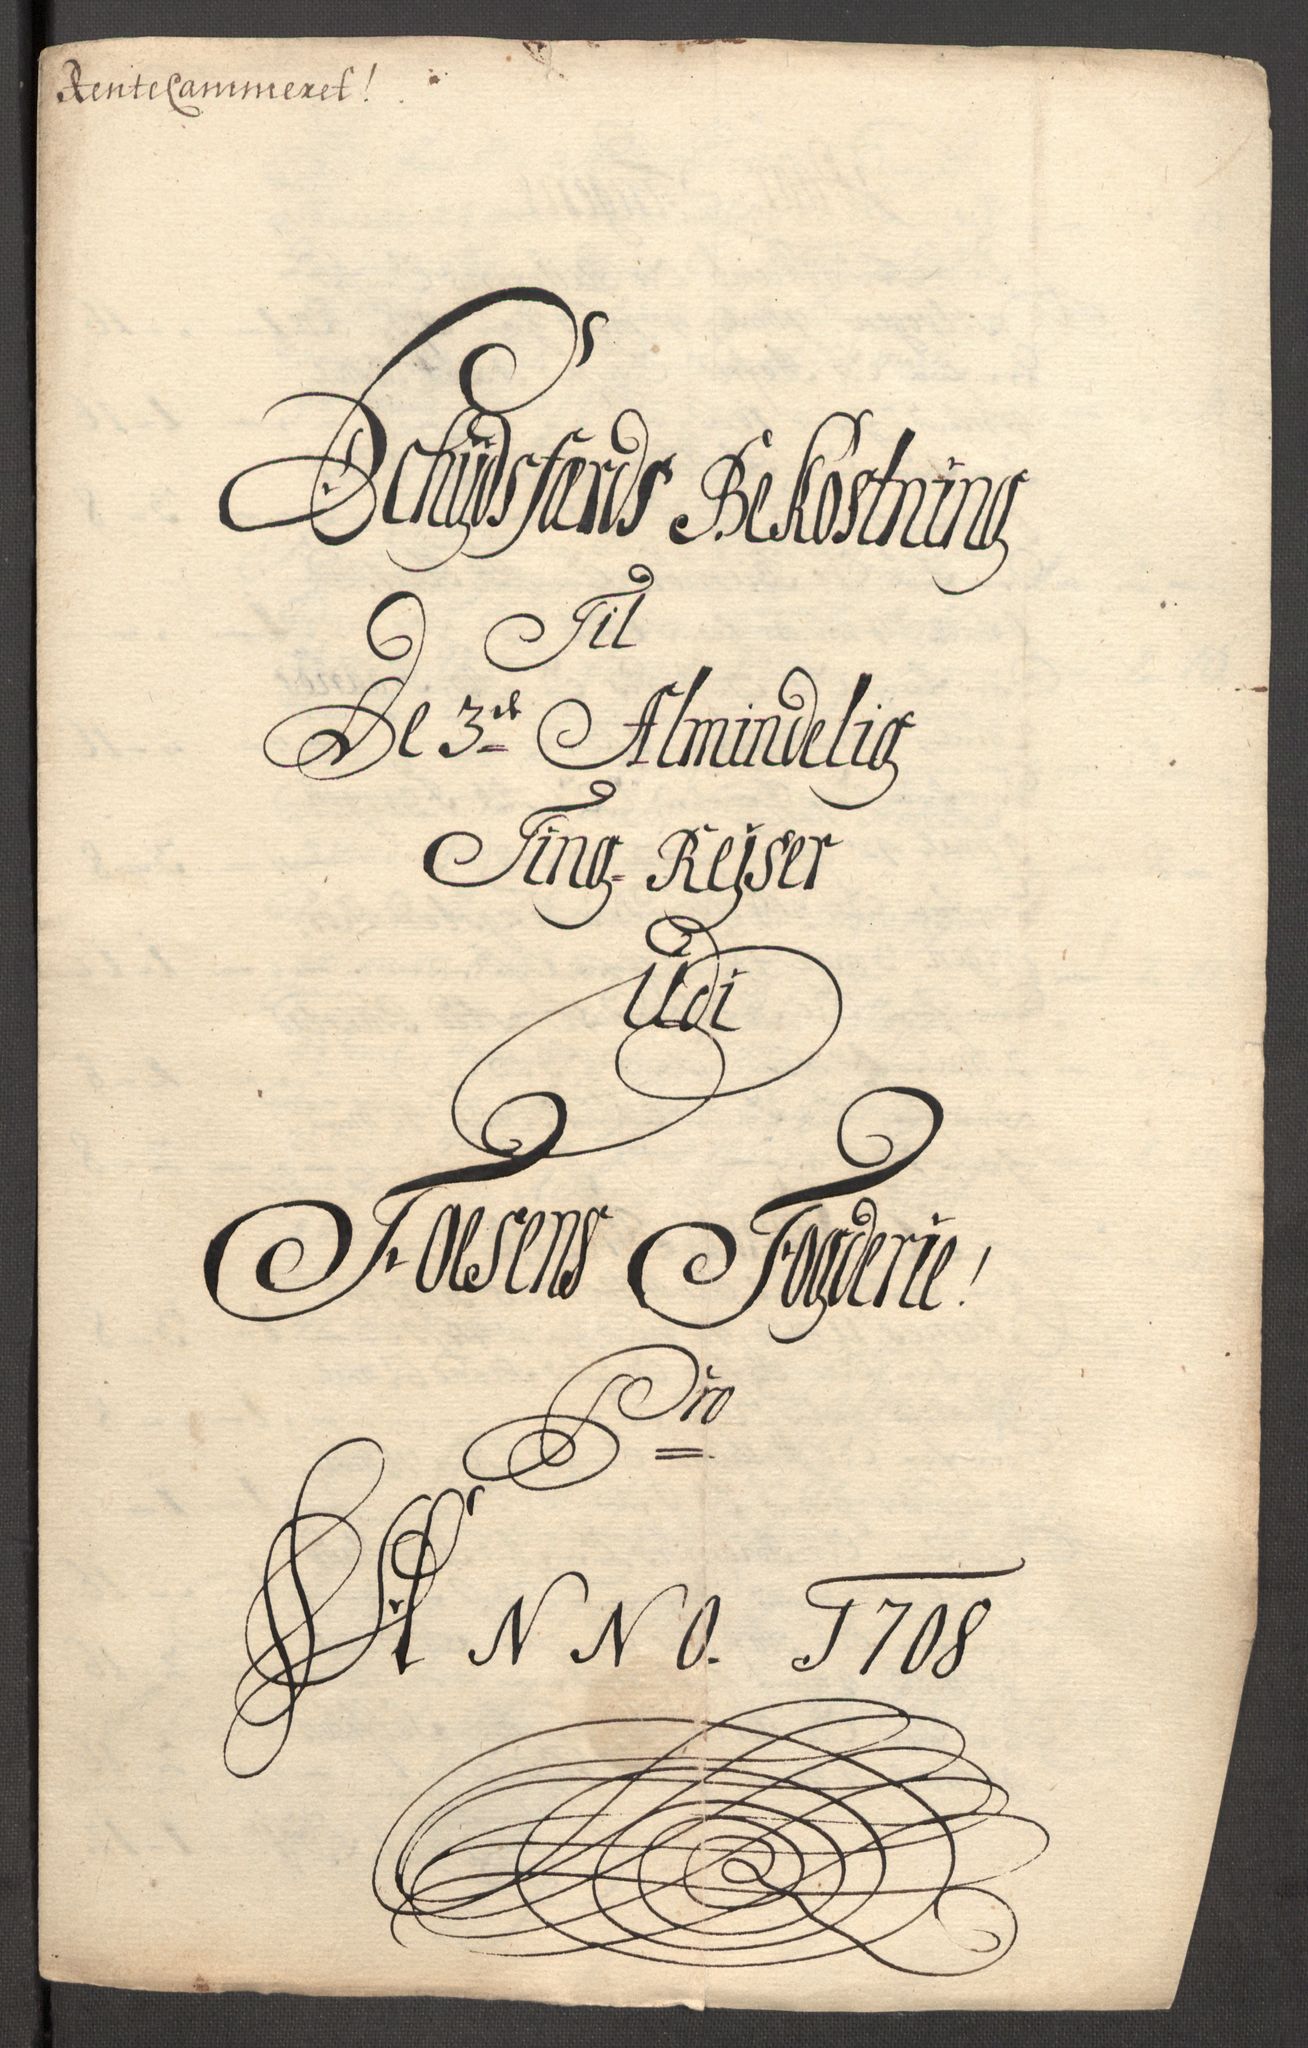 RenteCammeret!
Schÿdsfærds Bekostning
Til
De 3de Almindelig
Ting-Rejser
Udi
Foesens Fogderie!
Pro
ANNO. 1708